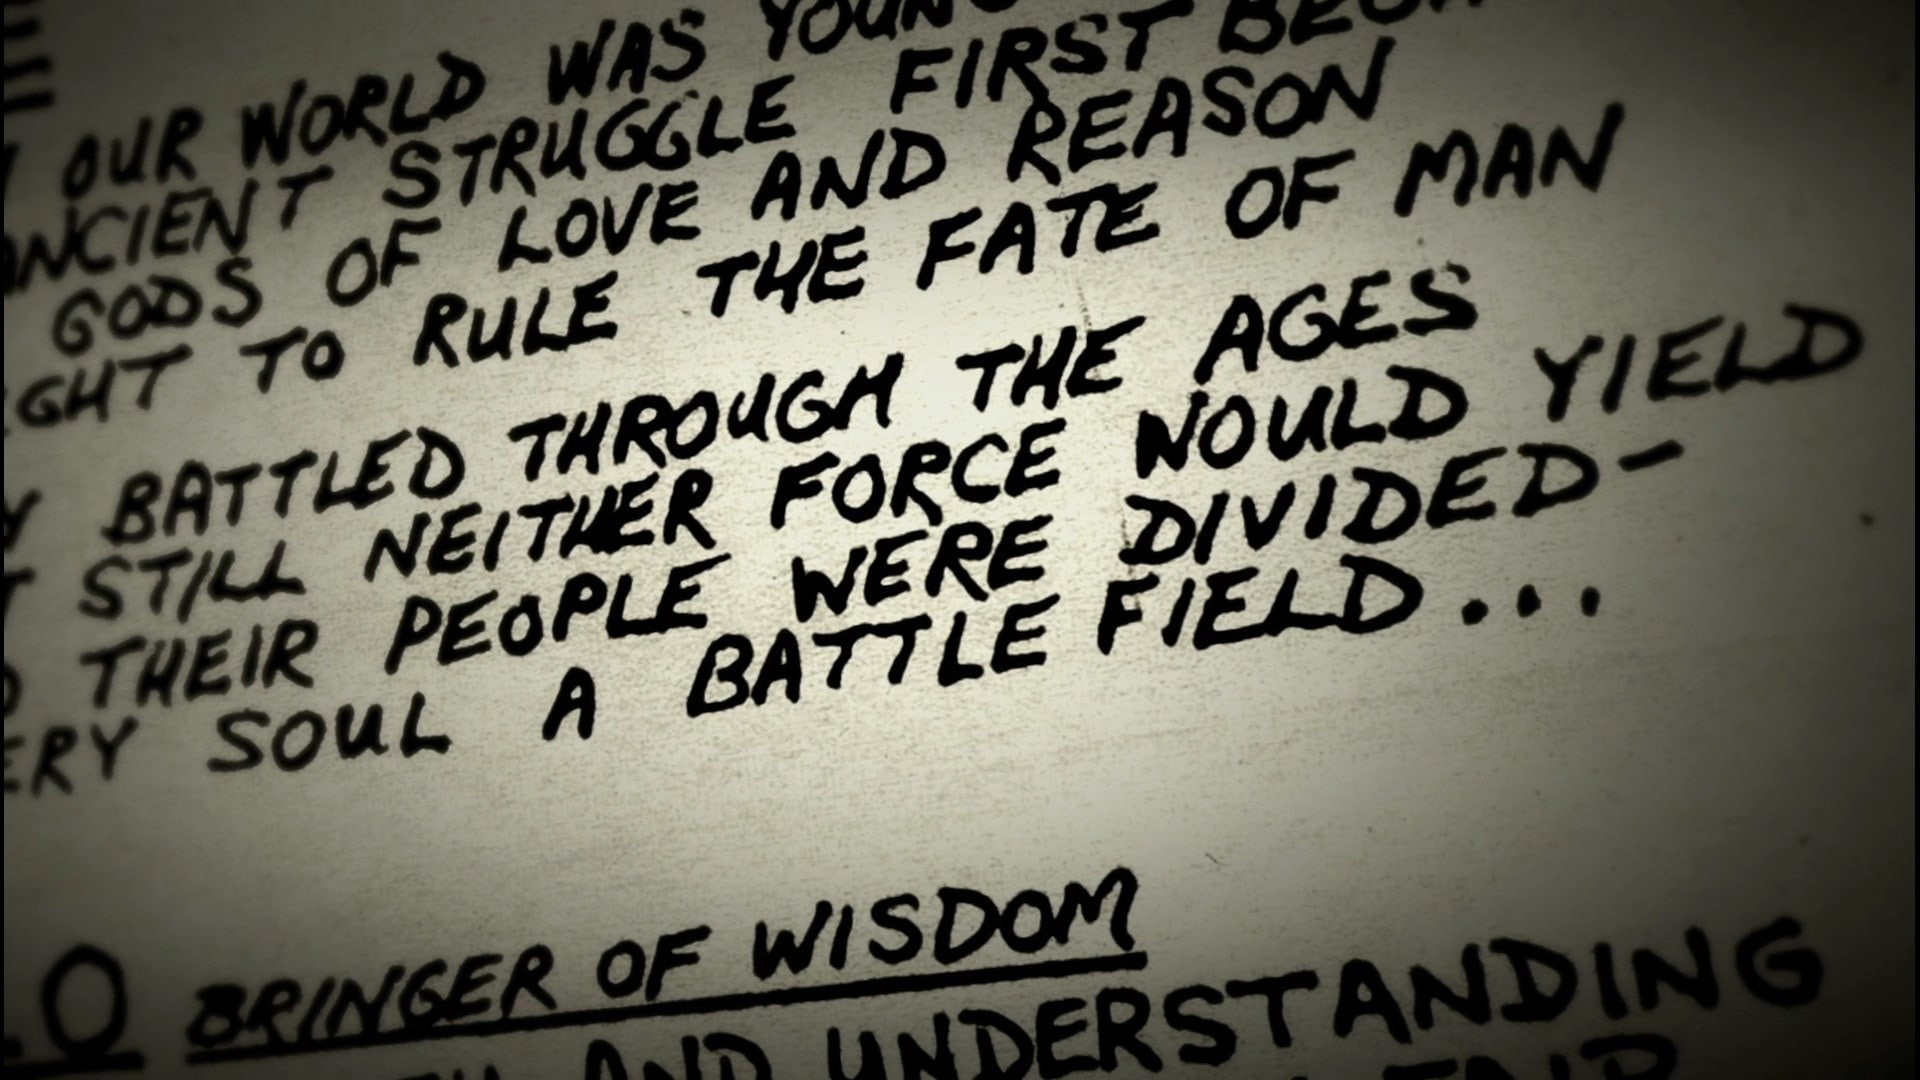 OUR WORLD WAS
ANCIENT STRUGGLE FIRST
GODS OF LOVE AND REASON
TO RULE THE FATE OF MAN
BATTLED THROUGH THE AGES
STILL NEITHER FORCE WOULD YIELD
THEIR PEOPLE WERE DIVIDED-
SOUL A BATTLE FIELD...
BRINGER OF WISDOM
AND UNDERSTANDING